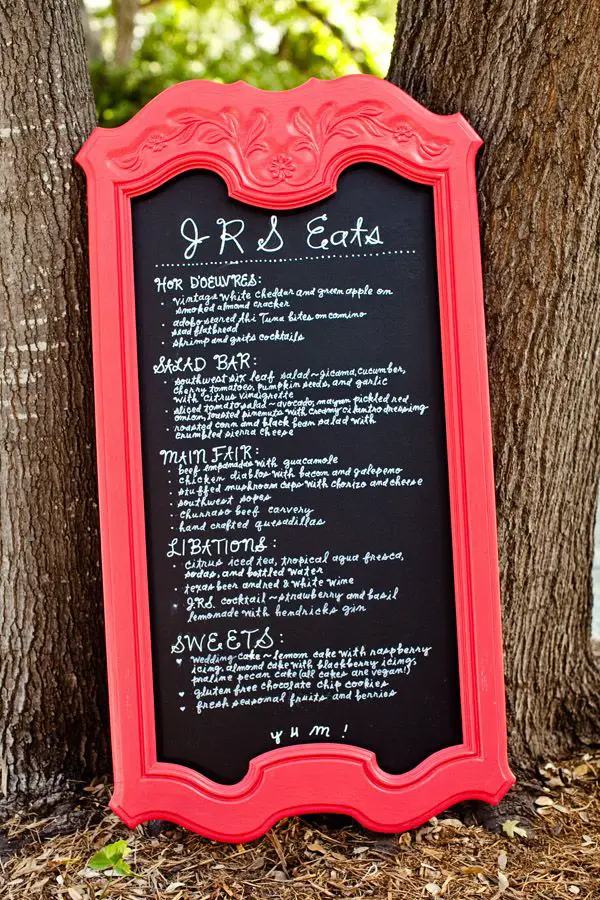 JRS Eats
HOR D'OEUVRES:
• vintage white cheddar and green apple on
smoked almond cracker
• adobo seared Ahi Tuna bites on comino
seed flatbread
• shrimp and grits cocktails
SALAD BAR:
• southwest six leaf salad ~ jicama, cucumber,
cherry tomatoes, pumpkin seeds, and garlic
with citrus vinaigrette
• sliced tomato salad ~ avocado, mayan pickled red
onion, toasted pinenuts with creamy cilantro dressing
• roasted corn and black bean salad with
crumbled sierra cheese
MAIN FAIR:
• beef empanadas with guacamole
• chicken diablos with bacon and galepeno
• stuffed mushroom caps with chorizo and cheese
• southwest sopes
• churraso beef carvery
• hand crafted quesadillas
LIBATIONS:
• citrus iced tea, tropical agua fresca,
sodas, and bottled water
• texas beer and red & white wine
• J.R.S. cocktail ~ strawberry and basil
lemonade with hendricks gin
SWEETS:
♥ wedding cake ~ lemon cake with raspberry
icing, almond cake with blackberry icing,
praline pecan cake (all cakes are vegan!)
♥ gluten free chocolate chip cookies
♥ fresh seasonal fruits and berries
yum!